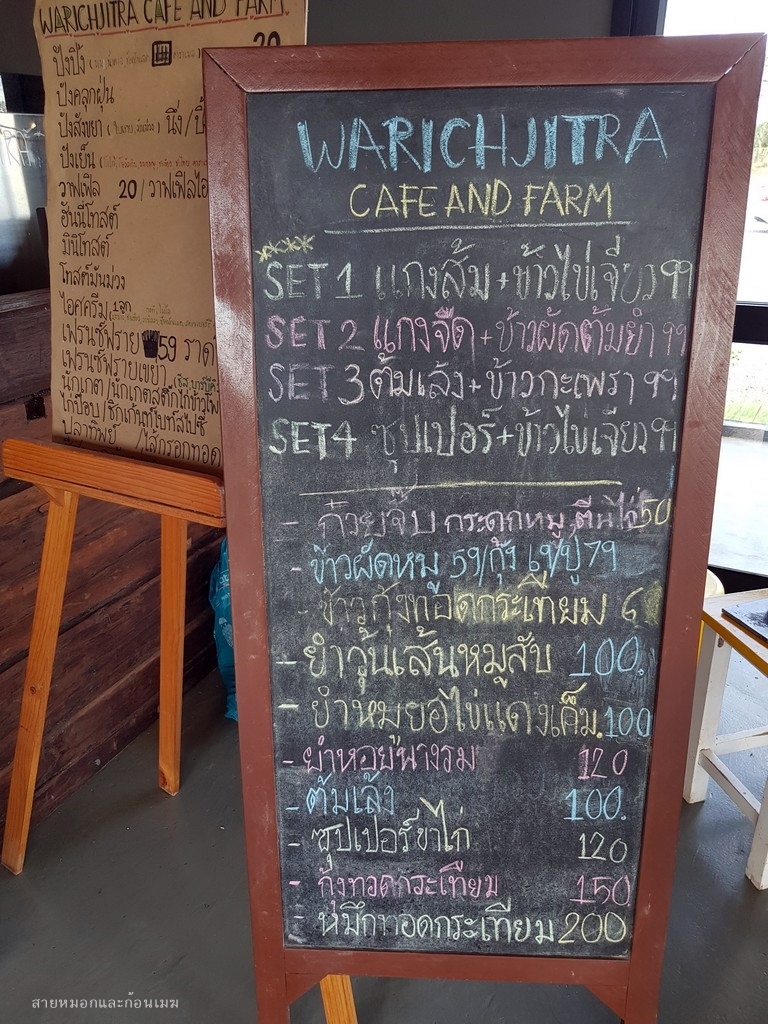 WARICHJITRA CAFE AND FARM
20
ปังปิ้ง
ปังคลุกฝุ่น
ปังสังขยา นึ่ง/ปิ้
ปังเย็น
วาฟเฟิล 20 /วาฟเฟิลไอ
ฮันนี่โทสต์
มินิโทสต์
โทสต์มะม่วง
ไอศครีม
เฟรนช์ฟราย 59 ราด
เฟรนช์ฟรายเขย่า
นักเกต/นักเกตสติ๊กไก่ข้าวโพ
ไก่ป๊อบ/ชิกเก้นทไบท์สไปซี่
ปลาทิพย์ /ไส้กรอกทอด
WARICHJITRA
CAFE AND FARM
SET 1 แกงส้ม+ข้าวไข่เจียว 99
SET 2 แกงจืด+ข้าวผัดต้มยำ 99
SET 3 ต้มเล้ง+ข้าวกะเพรา 99
SET 4 ซุปเปอร์+ข้าวไข่เจียว 99
- ก๋วยจั๊บ กระดูกหมู, ตีนไก่ 50
- ข้าวผัดหมู 59/กุ้ง ปู 79
- ข้าวกุ้งทอดกระเทียม
- ยำวุ้นเส้นหมูสับ 100.
- ยำหมูยอไข่แดงเค็ม.100
- ยำหอยนางรม 120
- ต้มเล้ง 100.
- ซุปเปอร์ขาไก่ 120
- กุ้งทอดกระเทียม 150
- หมึกทอดกระเทียม 200
สายหมอกและก้อนเมฆ